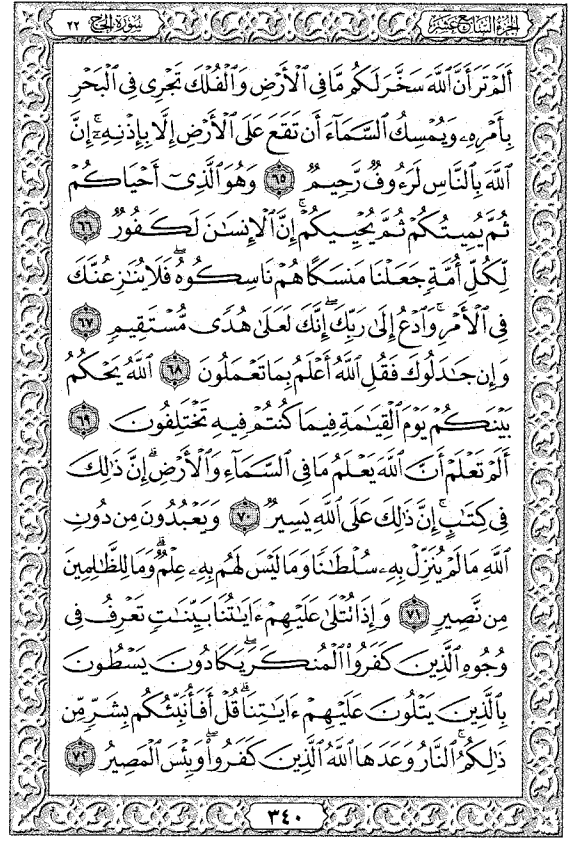 سُورَةُ الحَجّ ٢٢
الجُزْءُ السَّابِعَ عَشَرَ
أَلَمْ تَرَ أَنَّ ٱللَّهَ سَخَّرَ لَكُم مَّا فِى ٱلْأَرْضِ وَٱلْفُلْكَ تَجْرِى فِى ٱلْبَحْرِ
بِأَمْرِهِۦ وَيُمْسِكُ ٱلسَّمَآءَ أَن تَقَعَ عَلَى ٱلْأَرْضِ إِلَّا بِإِذْنِهِۦٓ ۗ إِنَّ
ٱللَّهَ بِٱلنَّاسِ لَرَءُوفٌ رَّحِيمٌ ٦٥ وَهُوَ ٱلَّذِىٓ أَحْيَاكُمْ
ثُمَّ يُمِيتُكُمْ ثُمَّ يُحْيِيكُمْ ۗ إِنَّ ٱلْإِنسَٰنَ لَكَفُورٌ ٦٦
لِّكُلِّ أُمَّةٍ جَعَلْنَا مَنسَكًا هُمْ نَاسِكُوهُ ۖ فَلَا يُنَٰزِعُنَّكَ
فِى ٱلْأَمْرِ ۚ وَٱدْعُ إِلَىٰ رَبِّكَ ۖ إِنَّكَ لَعَلَىٰ هُدًى مُّسْتَقِيمٍ ٦٧
وَإِن جَٰدَلُوكَ فَقُلِ ٱللَّهُ أَعْلَمُ بِمَا تَعْمَلُونَ ٦٨ ٱللَّهُ يَحْكُمُ
بَيْنَكُمْ يَوْمَ ٱلْقِيَٰمَةِ فِيمَا كُنتُمْ فِيهِ تَخْتَلِفُونَ ٦٩
أَلَمْ تَعْلَمْ أَنَّ ٱللَّهَ يَعْلَمُ مَا فِى ٱلسَّمَآءِ وَٱلْأَرْضِ ۗ إِنَّ ذَٰلِكَ
فِى كِتَٰبٍ ۚ إِنَّ ذَٰلِكَ عَلَى ٱللَّهِ يَسِيرٌ ٧٠ وَيَعْبُدُونَ مِن دُونِ
ٱللَّهِ مَا لَمْ يُنَزِّلْ بِهِۦ سُلْطَٰنًا وَمَا لَيْسَ لَهُم بِهِۦ عِلْمٌ ۗ وَمَا لِلظَّٰلِمِينَ
مِن نَّصِيرٍ ٧١ وَإِذَا تُتْلَىٰ عَلَيْهِمْ ءَايَٰتُنَا بَيِّنَٰتٍ تَعْرِفُ فِى
وُجُوهِ ٱلَّذِينَ كَفَرُوا۟ ٱلْمُنكَرَ ۖ يَكَادُونَ يَسْطُونَ
بِٱلَّذِينَ يَتْلُونَ عَلَيْهِمْ ءَايَٰتِنَا ۗ قُلْ أَفَأُنَبِّئُكُم بِشَرٍّ مِّن
ذَٰلِكُمُ ۗ ٱلنَّارُ وَعَدَهَا ٱللَّهُ ٱلَّذِينَ كَفَرُوا۟ ۖ وَبِئْسَ ٱلْمَصِيرُ ٧٢
٣٤٠